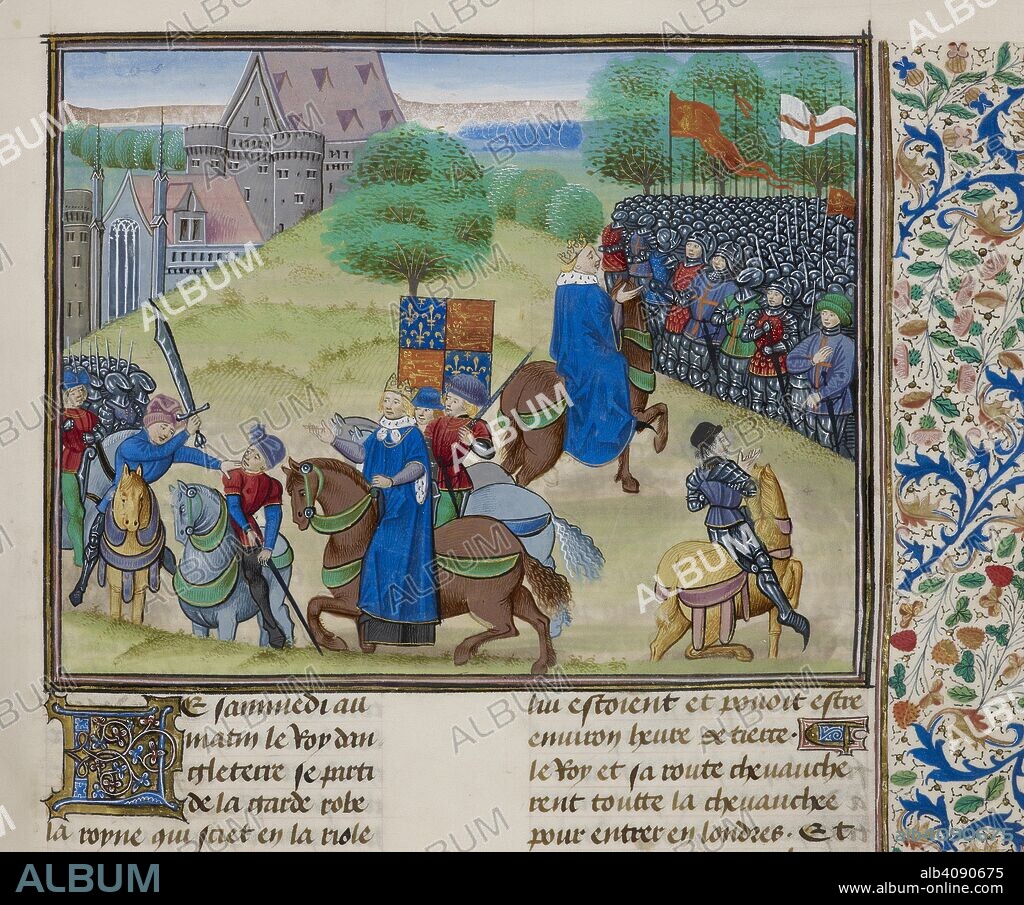 Le sammedi au
matin le Roy dan
gleterre se parti
de la garde robe
la royne qui siet en la riole
lui estoient et pouoit estre
environ heure de tierce.
le Roy et sa route chevauche
rent toutte la chevauchee
pour entrer en londres. Et
ALBUM
alb4090675
www.album-online.com